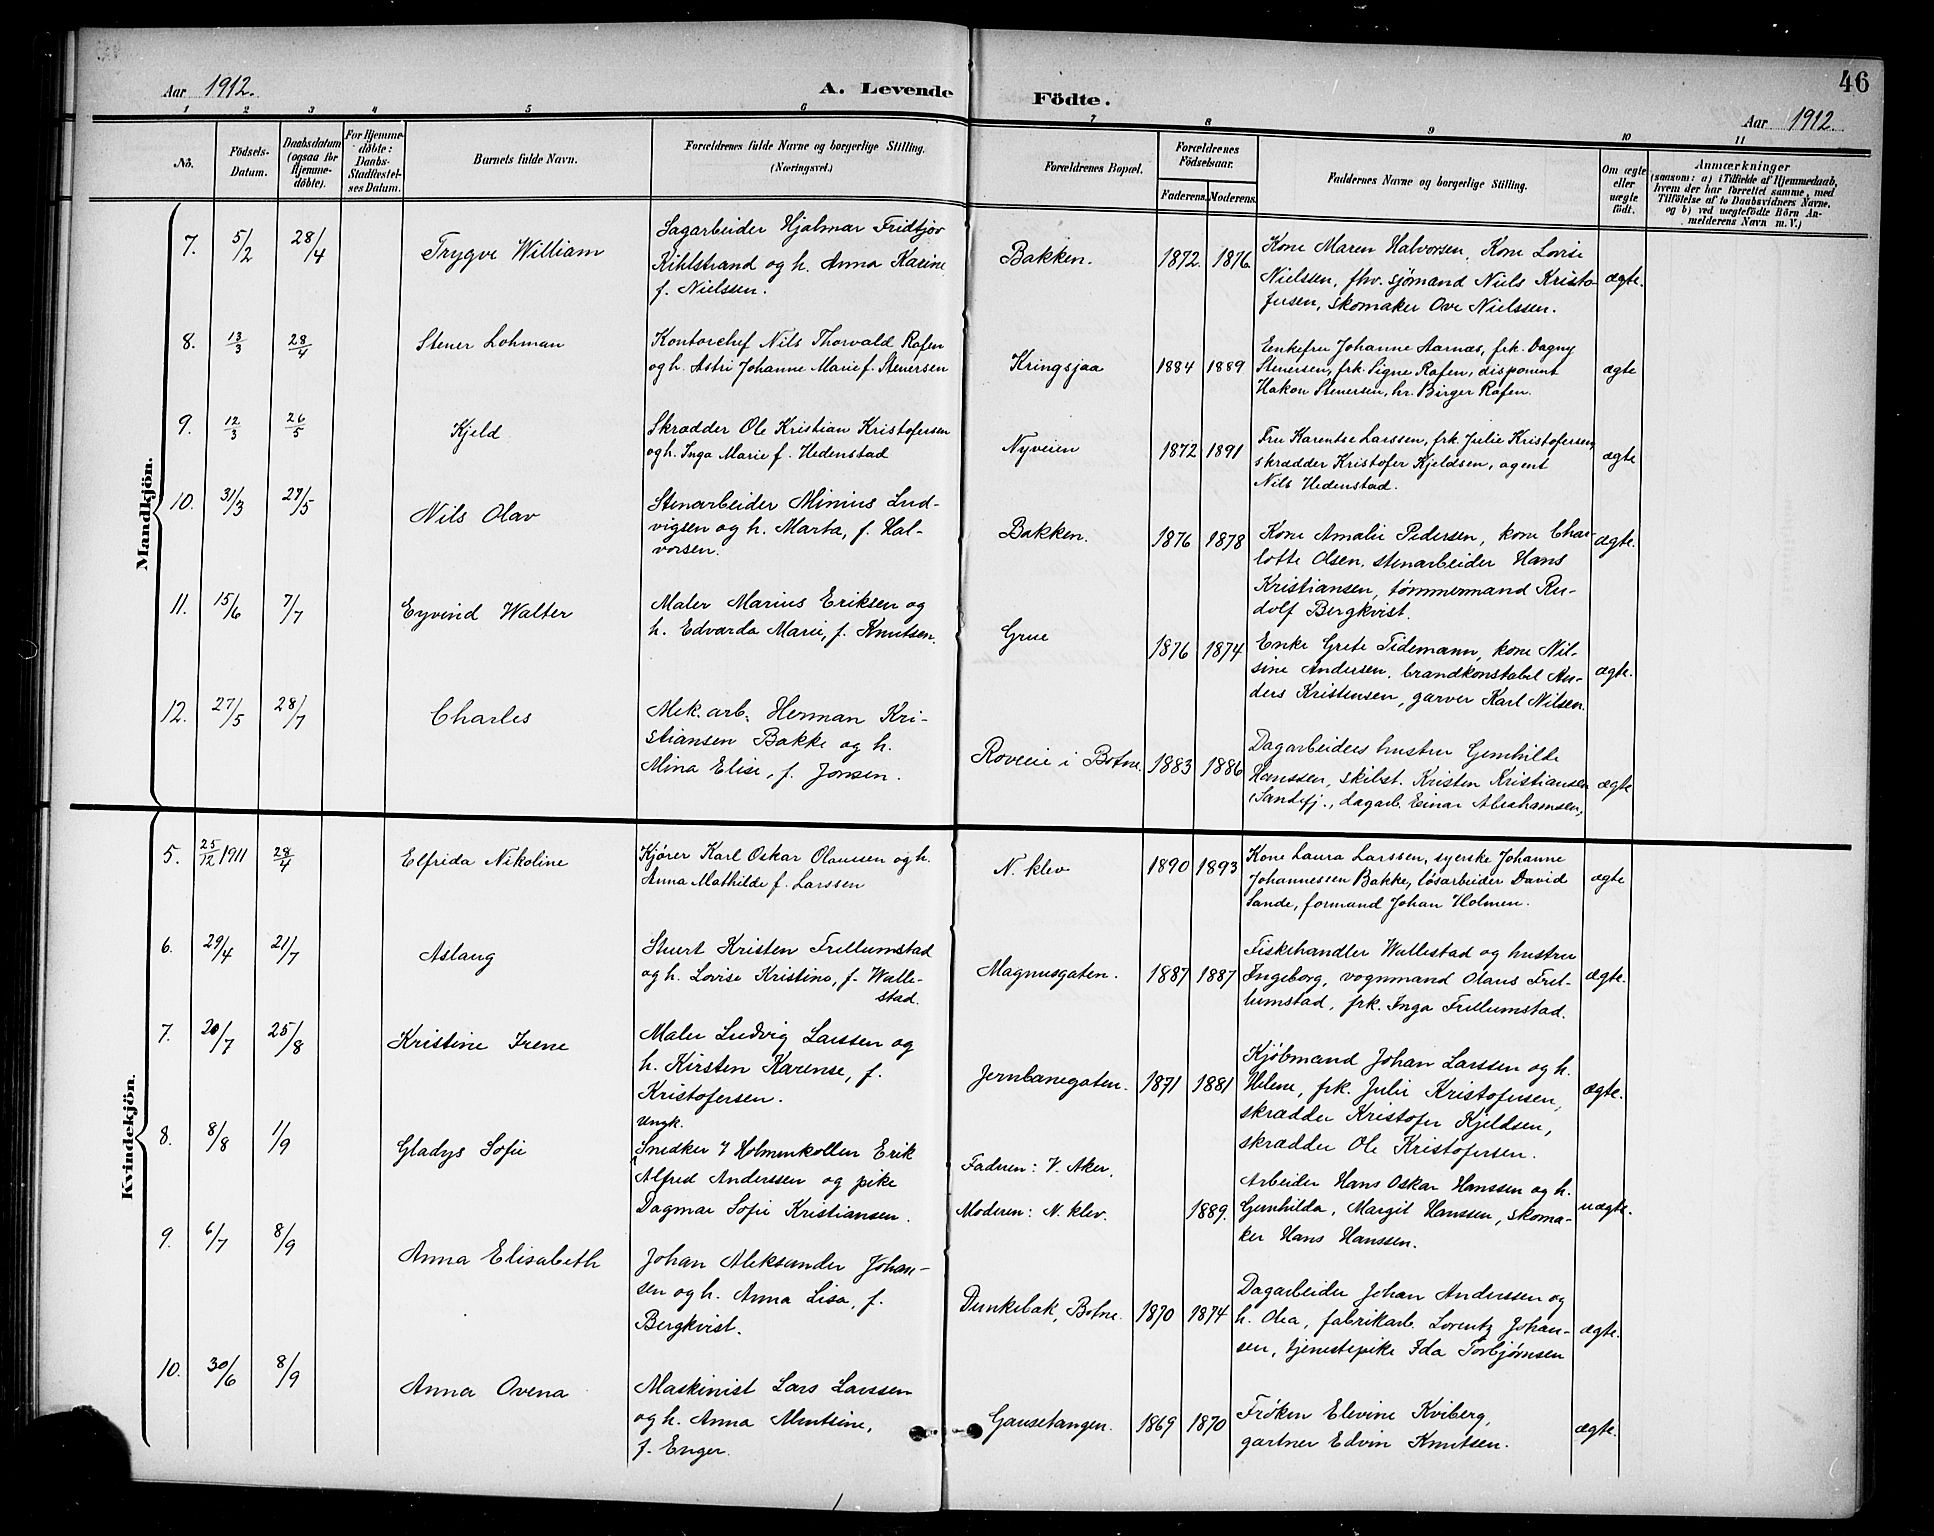 46
Aar 1912. A. Levende Födte. Aar 1912
1 2 3 4 5 6 7 8 9 10 11
No. Födsels-Datum. Daabsdatum (ogsaa for Hjemmedöbte). For Hjemmedöbte: Daabs-Stadfæstelses Datum. Barnets fulde Navn. Forældrenes fulde Navne og borgerlige Stilling. (Næringsvei.) Forældrenes Bopæl. Forældrenes Födselsaar. Faderens. Moderens. Faddernes Navne og borgerlige Stilling. Om ægte eller uægte födt. Anmærkninger (saasom: a) i Tilfælde af Hjemmedaab, hvem der har forrettet samme, med Tilföielse af to Daabsvidners Navne, og b) ved uægtefödte Börn Anmelderens Navn m. V.)
Mandkjön.
7. 5/2 28/4 Trygve William
Sagarbeider Hjalmar Fridtjov
Kihlstrand og h. Anna Karine
f. Nielssen.
Bakken. 1872. 1876.
Kone Maren Halvorsen, Kone Lovise
Nielssen, fhv. sjömand Niels Kristo-
fersen, skomaker Ove Nielssen.
ægte.
8. 13/3 28/4 Stener Lohman
Kontorchef Nils Thorvald Rafen
og h. Astri Johanne Marie f. Stenersen
Kringsjaa 1884 1889
Enkefru Johanne Aarnæs, frk. Dagny
Stenersen, frk. Signe Rafen, disponent
Hakon Stenersen, hr. Birger Rafen.
ægte
9. 12/3 26/5 Kjeld
Skrædder Ole Kristian Kristofersen
og h. Inga Marie f. Hedenstad
Nyveien 1872 1891
Fru Karentse Larssen, frk. Julie Kristofersen,
skrædder Kristofer Kjeldsen, agent
Nils Hedenstad.
ægte
10. 31/3 27/5 Nils Olav
Stenarbeider Minius Lud-
vigsen og h. Marta, f. Hal-
vorsen.
Bakken. 1876 1878
Kone Amalie Pedersen, kone Char-
lotte Olsen, stenarbeider Hans
Kristiansen, tømmermand Ru-
dolf Bergkvist.
ægte.
11. 15/6 7/7 Eyvind Walter
Maler Marius Eriksen og
h. Edvarda Marie, f. Knutsen.
Grue 1876 1874
Enke Grete Tidemann, kone Nil-
sine Andersen, brandkonstabel An-
ders Kristensen, garver Karl Nilsen.
ægte.
12. 27/5 28/7 Charles
Mek. arb. Herman Kri-
stiansen Bakke og h.
Mina Elise, f. Jonsen.
Roveie i Botne 1883 1886
Dagarbeiders hustru Gemhilde
Hanssen, skibst. Kristen Kristiansen
Sandefj., dagarb. Einar Abrahamsen,
ægte
Kvindekjön.
5. 25/12 1911 28/4 Elfrida Nikoline
Kjører Karl Oskar Olaussen og h.
Anna Mathilde f. Larssen
N. klev 1890 1893
Kone Laura Larssen, syerske Johanne
Johannessen Bakke, løsarbeider David
Sande, formand Johan Holmen.
ægte
6. 29/4 21/7 Aslaug
Stuert Kristen Frellumstad
og h. Lovise Kristine, f. Walle-
stad.
Magnusgaten. 1887 1887
Fiskehandler Wallestad og hustru
Ingeborg, vognmand Olaus Frel-
lumstad, frk. Inga Frellumstad.
ægte.
7. 20/7 25/8 Kristine Irene
Maler Ludvig Larssen og
h. Kirsten Karense, f.
Kristofersen.
Jernbanegaten. 1871 1881
Kjøbmand Johan Larssen og h.
Helene, frk. Julie Kristofersen,
skrædder Kristofer Kjeldsen,
skrædder Ole Kristofersen.
ægte.
8. 8/8 1/9 Gladys Sofie
Ungk.
Snedker i Holmenkollen Erik
Alfred Anderssen og pike
Dagmar Sofie Kristiansen.
Faderen: V. Aker.
Moderen: N. klev. 1889.
Arbeider Hans Oskar Hanssen og h.
Gunhilda, Margit Hanssen, skoma-
ker Hans Hanssen.
uægte.
9. 6/7 8/9 Anna Elisabeth
Johan Aleksander Johan-
sen og h. Anna Lisa, f.
Bergkvist.
Dunkebæk, Botne. 1870 1874
Dagarbeider Johan Anderssen og
h. Olea, fabrikarb. Lorentz Johan-
sen, tjenestepike Ida Torbjørnsen
ægte.
10. 30/6 8/9 Anna Ovena
Maskinist Lars Larssen
og h. Anna Amtsine,
f. Enger.
Gausetangen. 1869 1870
Frøken Elevine Kviberg,
gartner Edvin Knutsen.
ægte.